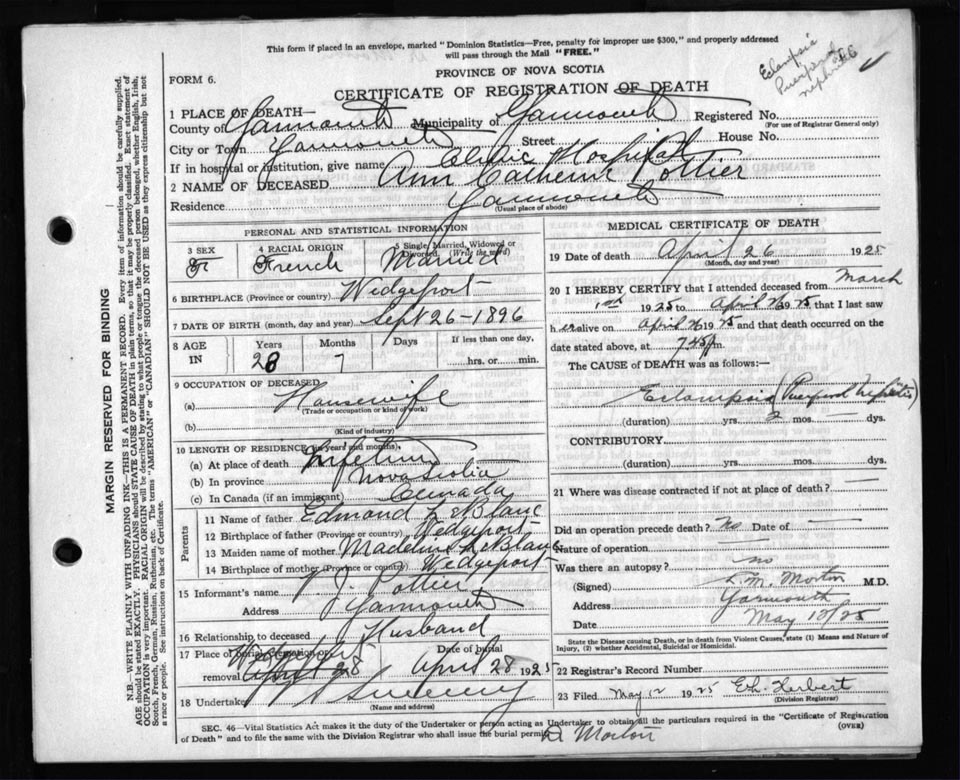 This form if placed in an envelope, marked "Dominion Statistics—Free, penalty for improper use $300," and properly addressed
will pass through the Mail "FREE."
Eclampsia
Puerperal
nephritis
PROVINCE OF NOVA SCOTIA
FORM 6.
CERTIFICATE OF REGISTRATION OF DEATH
1 PLACE OF DEATH—
County of Yarmouth Municipality of Yarmouth Registered No.
(For use of Registrar General only)
City or Town Yarmouth Street House No.
If in hospital or institution, give name Clinic Hospital
2 NAME OF DECEASED Ann Catherine Pottier
Residence Yarmouth
(Usual place of abode)
PERSONAL AND STATISTICAL INFORMATION
3 SEX F
4 RACIAL ORIGIN French
5 Single, Married, Widowed or Divorced (Write the word) Married
6 BIRTHPLACE (Province or country) Wedgeport
7 DATE OF BIRTH (month, day and year) Sept 26 - 1896
8 AGE IN Years 28 Months 7 Days If less than one day, hrs. or min.
9 OCCUPATION OF DECEASED
(a) Housewife
(Trade or occupation or kind of work)
(b)
(Kind of industry)
10 LENGTH OF RESIDENCE (in years and months)
(a) At place of death Lifetime
(b) In province Nova Scotia
(c) In Canada (if an immigrant) Canada
Parents
11 Name of father Edmond LeBlanc
12 Birthplace of father (Province or country) Wedgeport
13 Maiden name of mother Madeline LeBlanc
14 Birthplace of mother (Province or country) Wedgeport
15 Informant's name V. J. Pottier
Address Yarmouth
16 Relationship to deceased Husband
17 Place of burial, cremation or removal Wedgeport April 28
Date of burial April 28 1925
18 Undertaker Sweeny
(Name and address)
MEDICAL CERTIFICATE OF DEATH
19 Date of death April 26 1925
(Month, day and year)
20 I HEREBY CERTIFY that I attended deceased from March
1st 1925 to April 26 1925 that I last saw
her alive on April 26 1925 and that death occurred on the
date stated above, at 7.45 pm.
The CAUSE of DEATH was as follows:—
Eclampsia (Puerperal Nephritis)
(duration) yrs. 2 mos. dys.
CONTRIBUTORY
(duration) yrs. mos. dys.
21 Where was disease contracted if not at place of death?
Did an operation precede death? no Date of
Nature of operation
Was there an autopsy? no
(Signed) L. M. Morton M.D.
Address Yarmouth
Date May 12/25
State the Disease causing Death, or in death from Violent Causes, state (1) Means and Nature of
Injury, (2) whether Accidental, Suicidal or Homicidal.
22 Registrar's Record Number
23 Filed May 12 1925
(Division Registrar)
SEC. 46—Vital Statistics Act makes it the duty of the Undertaker or person acting as Undertaker to obtain all the particulars required in the "Certificate of Registration
of Death" and to file the same with the Division Registrar who shall issue the burial permit.
(OVER)
Morton
MARGIN RESERVED FOR BINDING
N.B.—WRITE PLAINLY WITH UNFADING INK—THIS IS A PERMANENT RECORD. Every item of information should be carefully supplied.
AGE should be stated EXACTLY. PHYSICIANS should STATE CAUSE OF DEATH in plain terms, so that it may be properly classified. Exact statement of
OCCUPATION is very important. RACIAL ORIGIN will be described by stating to what people or tongue the deceased person belonged, whether English, Irish,
Scotch, French, German, Russian, Ruthenian, etc. The terms "AMERICAN" or "CANADIAN" SHOULD NOT BE USED as they express citizenship but not
a race or people. See instructions on back of Certificate.